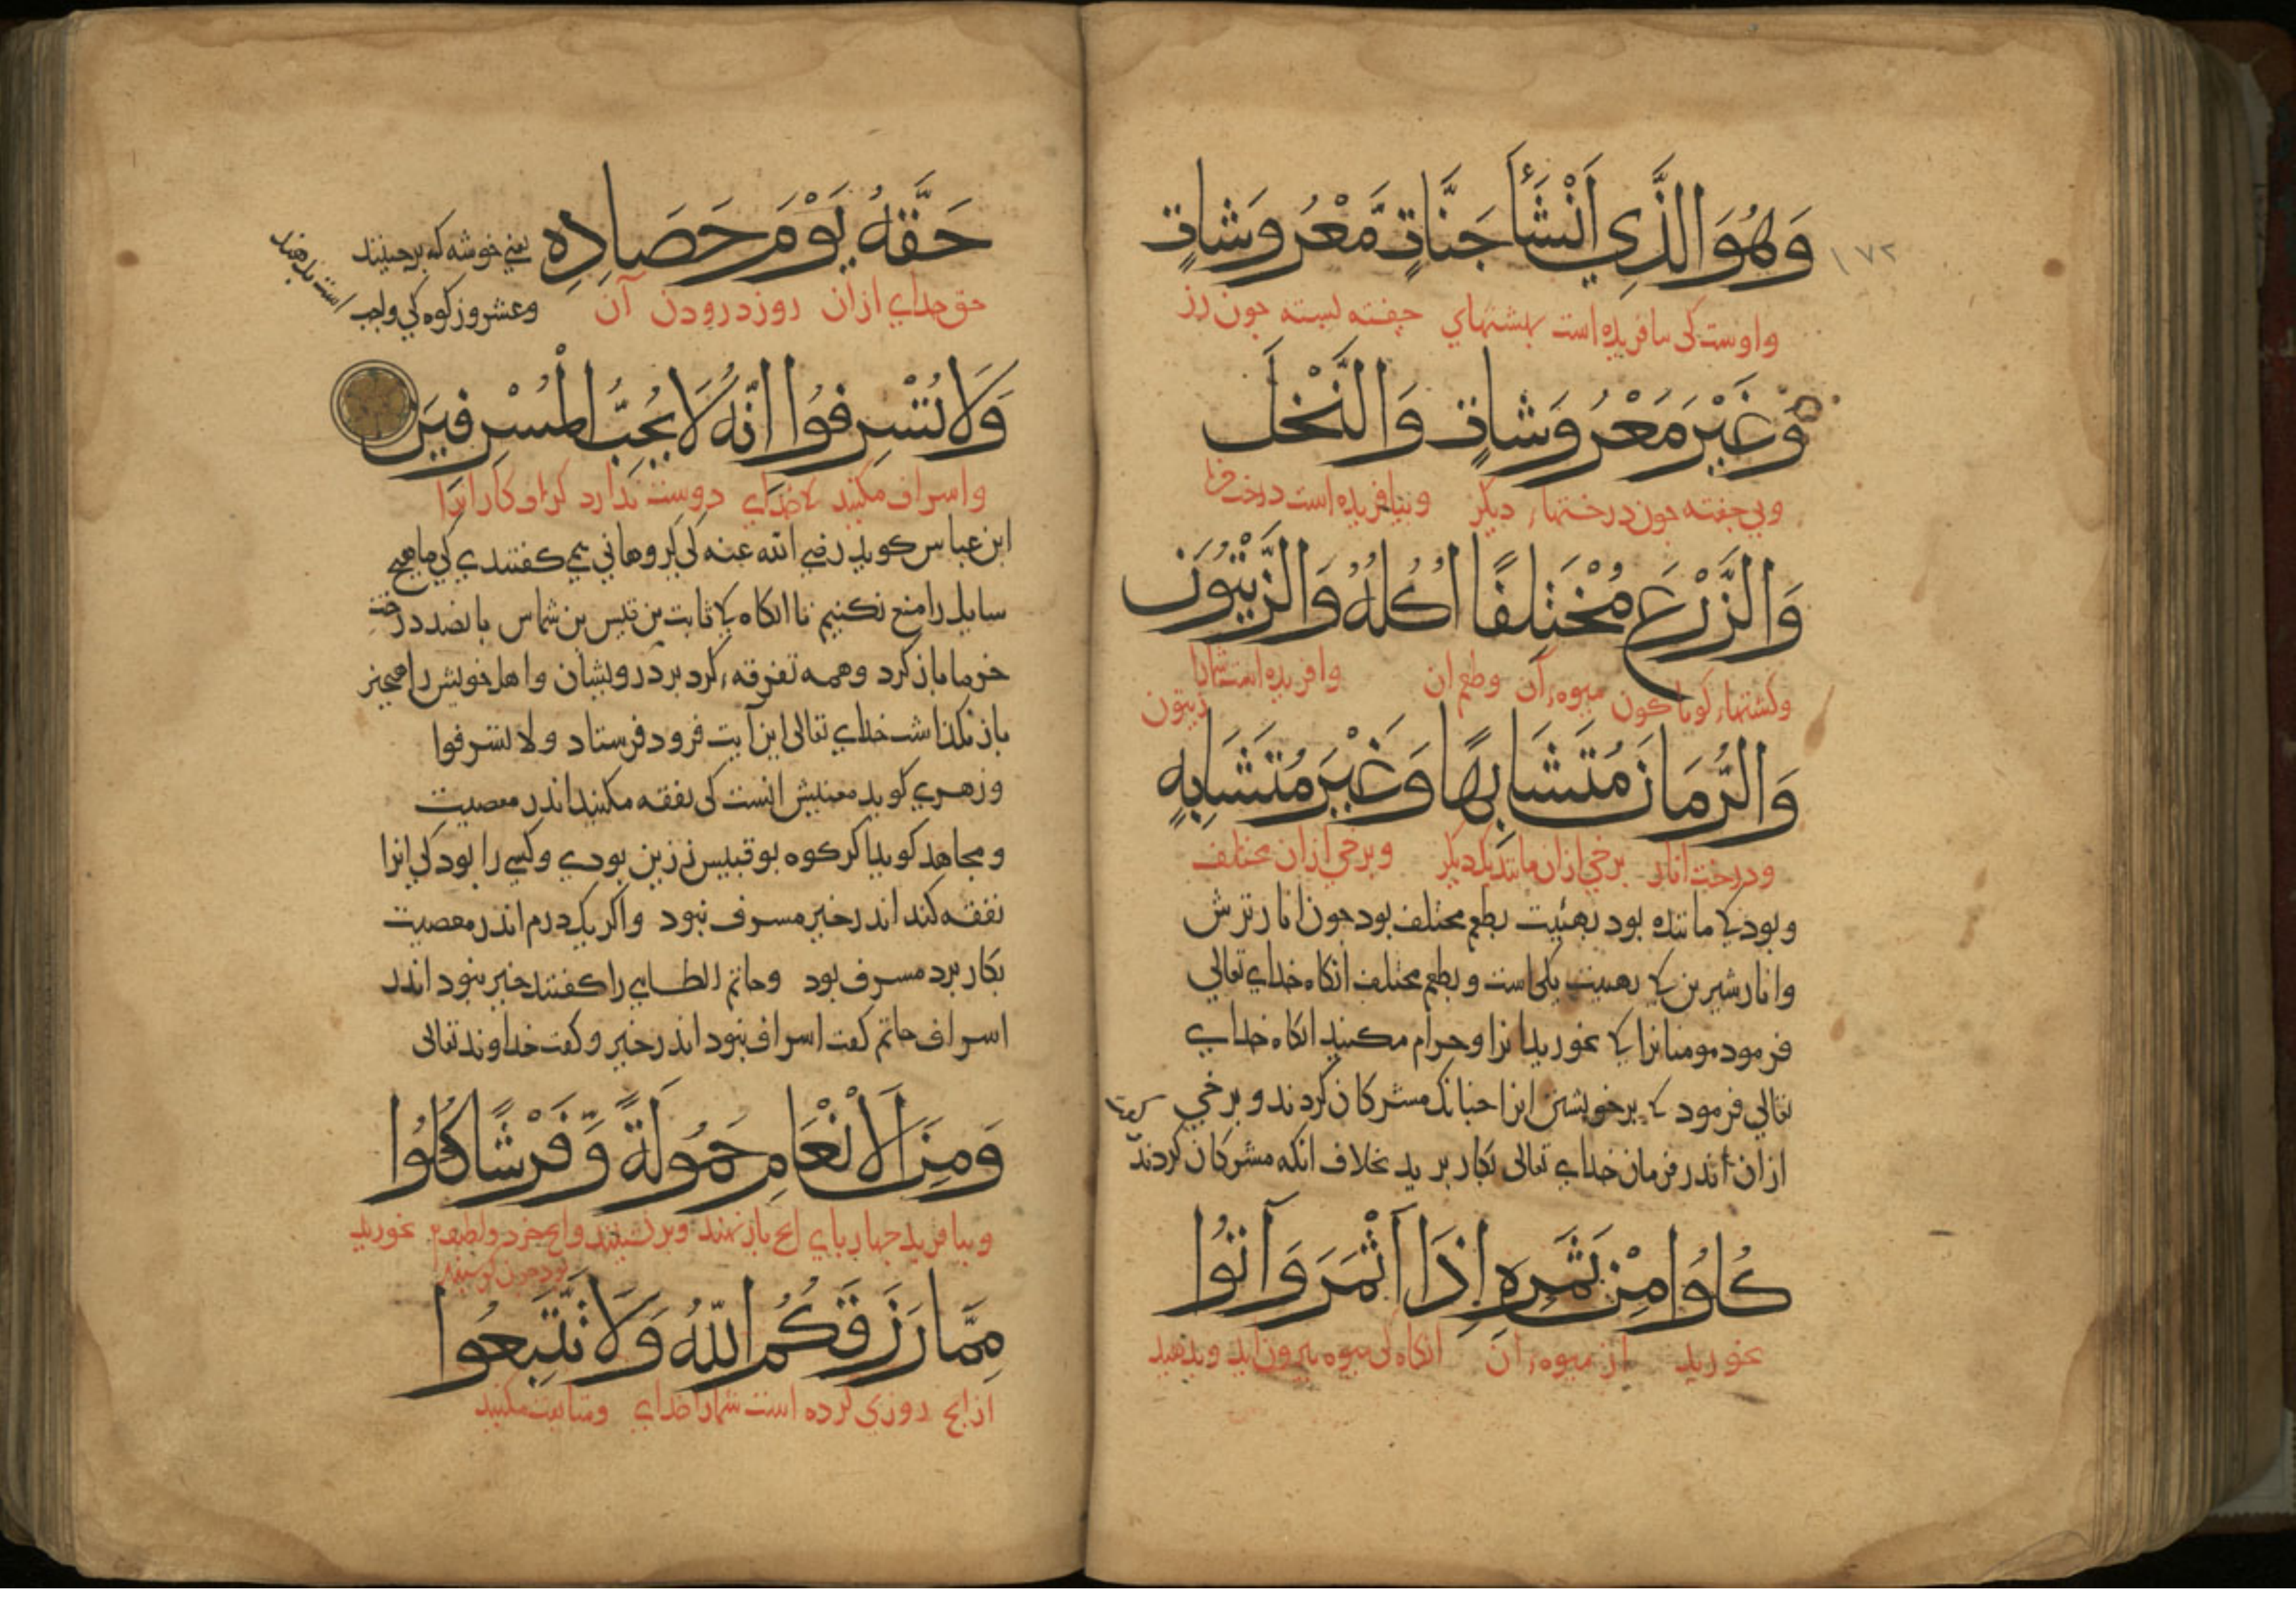 ١٧٢
وَهُوَ الَّذِي أَنْشَأَ جَنَّاتٍ مَّعْرُوشَاتٍ
و اوست کی بیافریده است بهشتهاي جفته بسته جون رز
وَغَيْرَ مَعْرُوشَاتٍ وَالنَّخْلَ
و بي جفته جون درختهاء دیکر و بیافریده است درخت خرما
وَالزَّرْعَ مُخْتَلِفًا اُكُلُهُ وَالزَّيْتُونَ
و کشتهاء کوناکون میوهء آن و طعم ان و افریده است شمارا زیتون
وَالرُّمَانَ مُتَشَابِهًا وَغَيْرَ مُتَشَابِهٍ
و درخت انار برخي ازان مانند یکدیکر و برخي ازان مختلف
و بود کی ماننده بود بهئیت بطعم مختلف بود جون انار ترش
و انار شیرین کی بهییت یکی است و بطعم مختلف انکاه خداي تعالي
فرمود مومنانرا کی بخوريد انرا و حرام مکنید انکاه خداي
تعالي فرمود کی برخویشتن انرا جنانک مشرکان کردند و برخي
ازان اندر فرمان خداي تعالی بکار برید بخلاف انکه مشرکان کردند
كُلُوا مِنْ ثَمَرِهِ إِذَا أَثْمَرَ وَآتُوا
بخورید از میوهء ان انکاه کی میوه بیرون اید و بدهید
حَقَّهُ يَوْمَ حَصَادِهِ یعني خوشه که برجینند
حق خداي ازان روز درودن آن و عشر و زکوه کي واجب است بدهند
وَلَا تُسْرِفُوا اِنَّهُ لَا يُحِبُّ الْمُسْرِفِيَن
و اسراف مکنید کی خداي دوست ندارد کزاف کارانرا
ابن عباس کوید رضي الله عنه کی کروهاني می کفتندي کي ما هیج
سایل را منع نکنیم تا انکاه کی ثابت بن قیس بن شماس بانصد درخت
خرما باز کرد و همه تفرقهء کرد بر درویشان و اهل خویش را هیجیز
باز نکذاشت خداي تعالی این آیت فرود فرستاد ولا تسرفوا
و زهري کوید معنیش انست کی نفقه مکنید اندر معصیت
و مجاهد کوید اکر کوه بوقبیس زرین بودي و کسي را بود کي انرا
نفقه کند اندر خیر مسرف نبود و اکر یک درم اندر معصیت
بکار برد مسرف بود و حاتم الطايي را کفتند خیر نبود اندر
اسراف حاتم کفت اسراف نبود اندر خیر و کفت خداوند تعالی
وَمِنَ الْاَنْعَامِ حَمُولَةً وَّفَرْشًا كُلُوا
و بیافرید جهاربایي انج بار نهند و برنشینند و انج خرد و لطیف تر بود جون کوسبند بخورید
مِمَّا رَزَقَكُمُ اللّٰهُ وَلَا تَتَّبِعُوا
از انج روزي کرده است شمارا خداي و متابعت مکنید